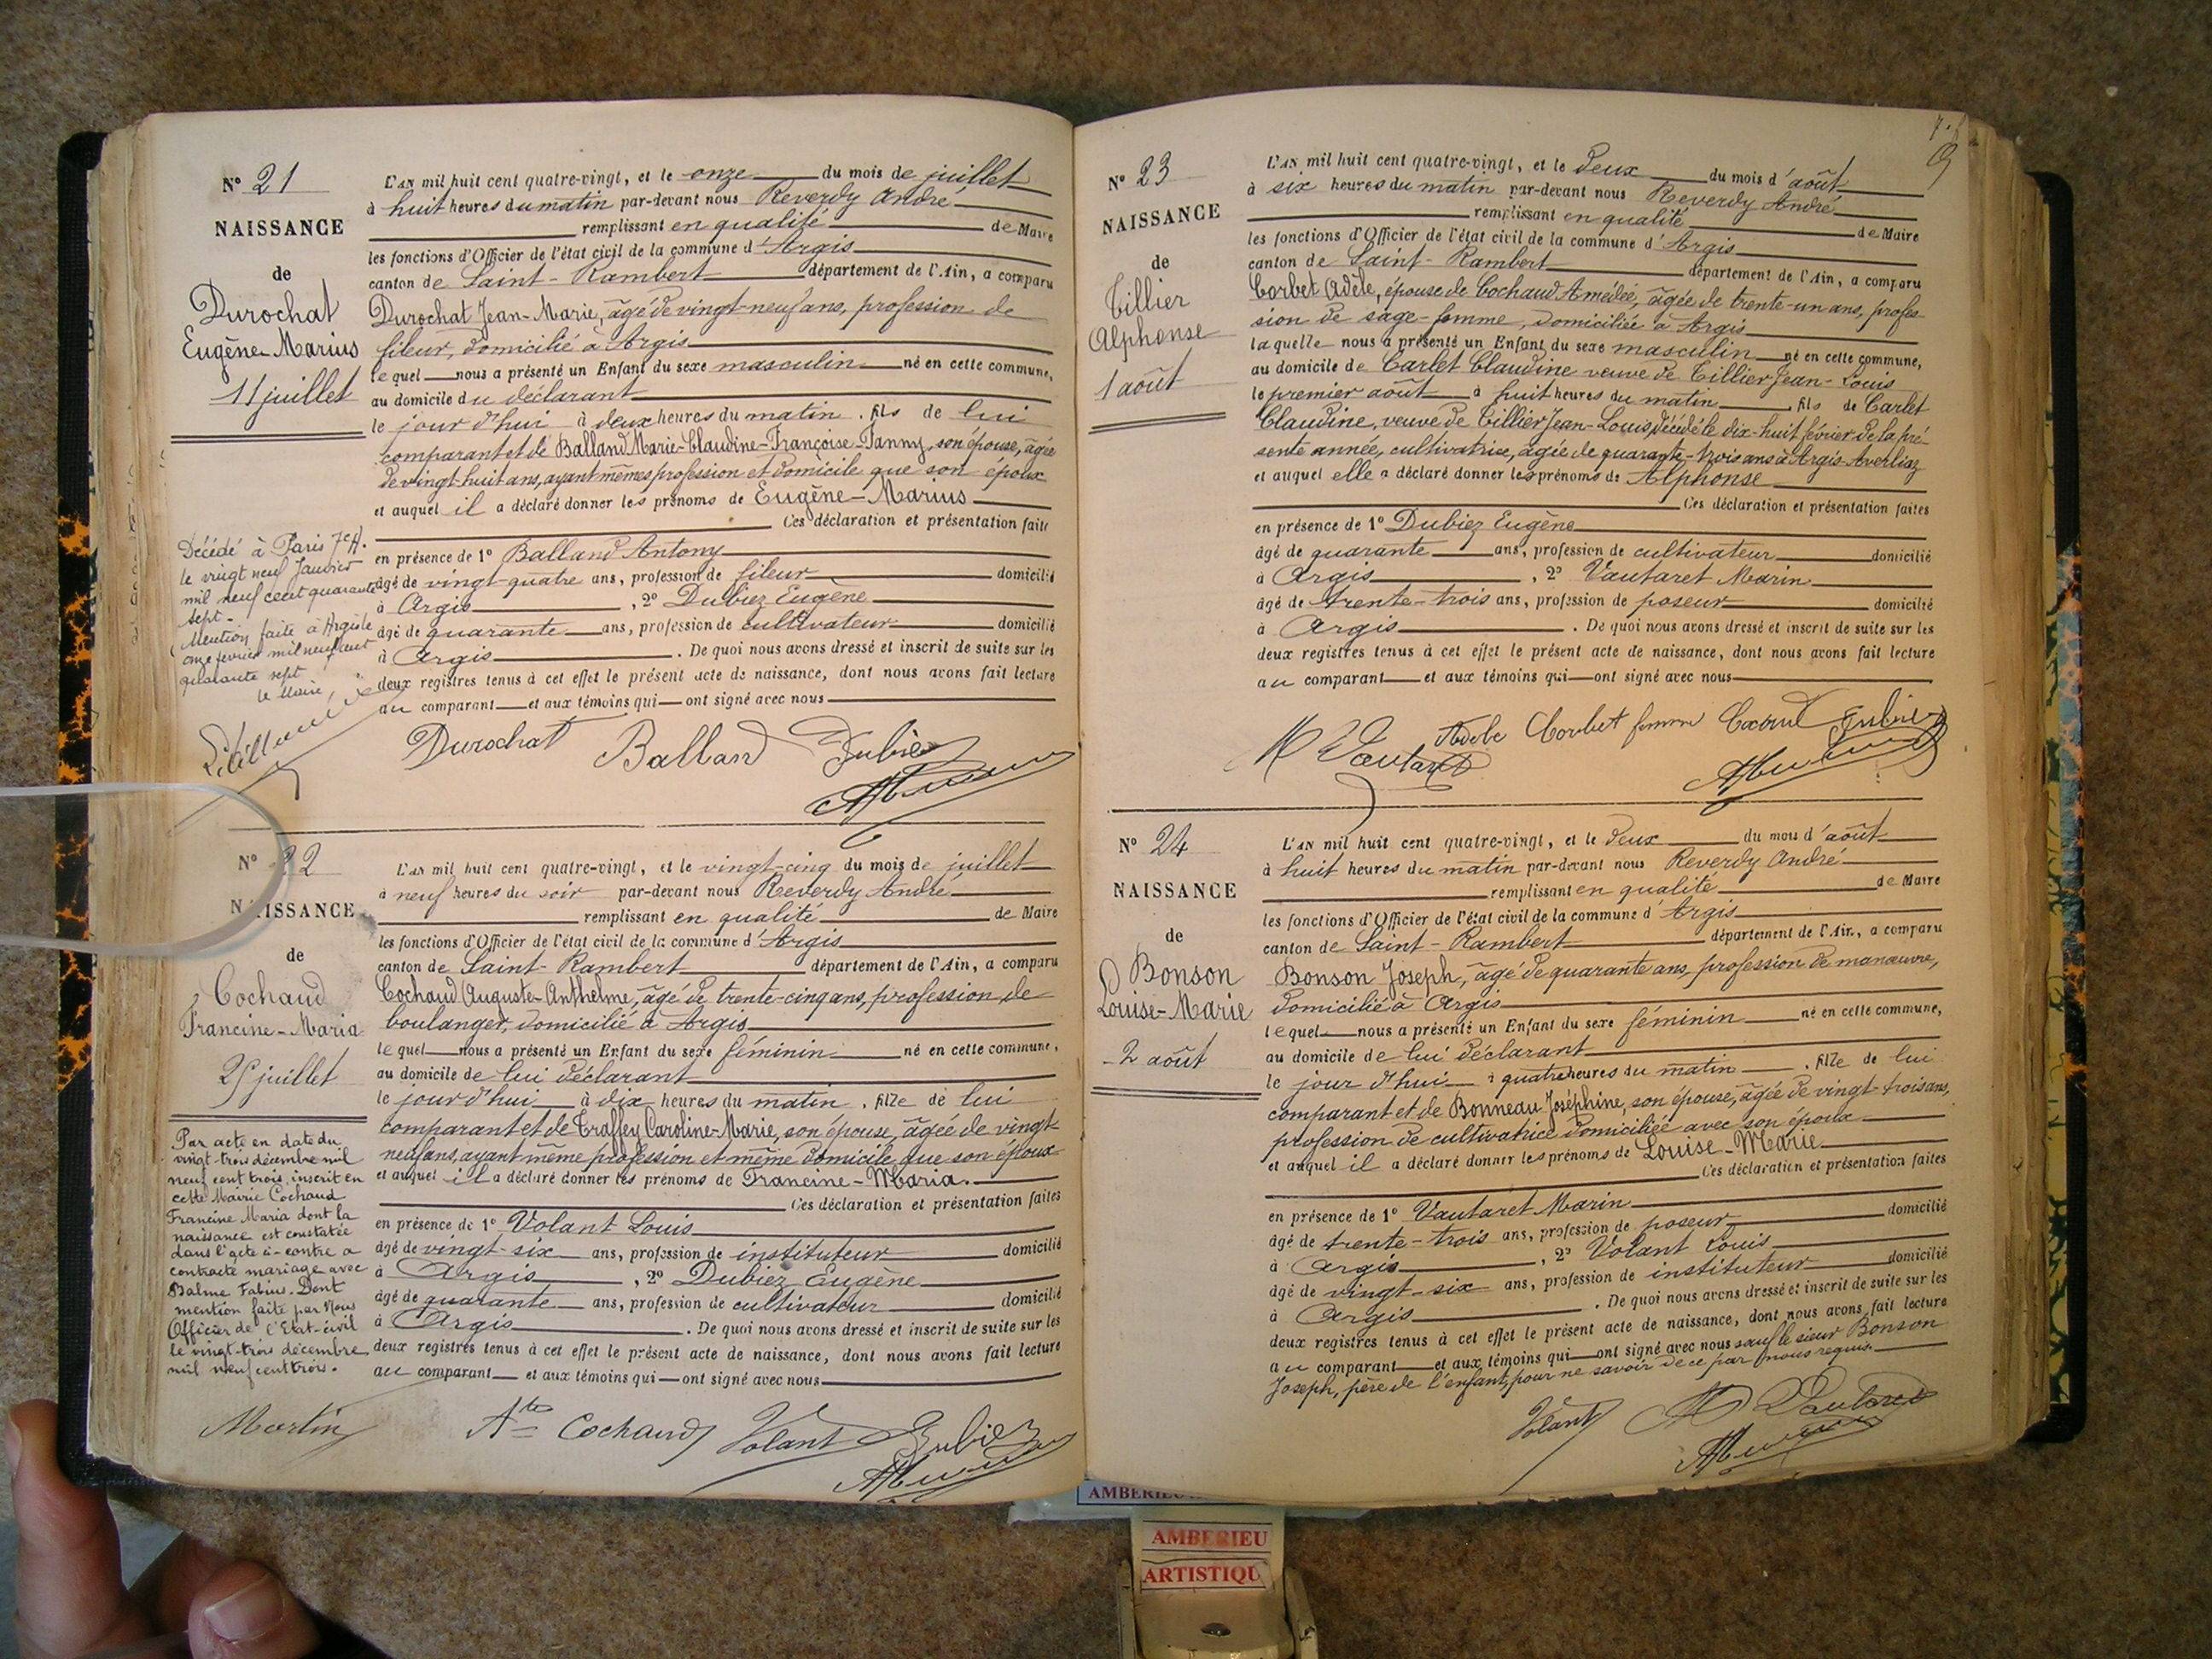 N° 21
NAISSANCE
de
Durochat
Eugène-Marius
11 juillet
L'AN mil huit cent quatre-vingt, et le onze du mois de juillet
à huit heures du matin par-devant nous Reverdy André
remplissant en qualité de Maire
les fonctions d'Officier de l'état civil de la commune d'Argis
canton de Saint-Rambert département de l'Ain, a comparu
Durochat Jean-Marie, âgé de vingt-neuf ans, profession de
fileur, domicilié à Argis
lequel nous a présenté un Enfant du sexe masculin né en cette commune,
au domicile du déclarant
le jour d'hui à deux heures du matin, fils de lui
comparant et de Balland Marie-Claudine-Françoise-Fanny, son épouse, âgée
de vingt-huit ans, ayant mêmes profession et domicile que son époux
et auquel il a déclaré donner les prénoms de Eugène-Marius
Ces déclaration et présentation faites
en présence de 1° Balland Antony
âgé de vingt-quatre ans, profession de fileur domicilié
à Argis, 2° Dubiez Eugène
âgé de quarante ans, profession de cultivateur domicilié
à Argis. De quoi nous avons dressé et inscrit de suite sur les
deux registres tenus à cet effet le présent acte de naissance, dont nous avons fait lecture
au comparant et aux témoins qui ont signé avec nous
Décédé à Paris 7e A.
le vingt neuf Janvier
mil neuf cent quarante
sept.
Mention faite à Argis le
onze fevrier mil neuf cent
quarante sept
Le Maire,
Durochat Balland Dubiez
N° 22
NAISSANCE
de
Cochaud
Francine-Maria
25 juillet
L'AN mil huit cent quatre-vingt, et le vingt-cinq du mois de juillet
à neuf heures du soir par-devant nous Reverdy André
remplissant en qualité de Maire
les fonctions d'Officier de l'état civil de la commune d'Argis
canton de Saint-Rambert département de l'Ain, a comparu
Cochaud Auguste-Anthelme, âgé de trente-cinq ans, profession de
boulanger, domicilié à Argis
lequel nous a présenté un Enfant du sexe féminin né en cette commune,
au domicile de lui déclarant
le jour d'hui à dix heures du matin, fille de lui
comparant et de Traffey Caroline-Marie, son épouse, âgée de vingt-
neuf ans, ayant même profession et même domicile que son époux
et auquel il a déclaré donner les prénoms de Francine-Maria.
Ces déclaration et présentation faites
en présence de 1° Volant Louis
âgé de vingt-six ans, profession de instituteur domicilié
à Argis, 2° Dubiez Eugène
âgé de quarante ans, profession de cultivateur domicilié
à Argis. De quoi nous avons dressé et inscrit de suite sur les
deux registres tenus à cet effet le présent acte de naissance, dont nous avons fait lecture
au comparant et aux témoins qui ont signé avec nous
Par acte en date du
vingt-trois décembre mil
neuf cent trois, inscrit en
cette Mairie Cochaud
Francine Maria dont la
naissance est constatée
dans l'acte ci-contre a
contracté mariage avec
Balme Fabius. Dont
mention faite par Nous
Officier de l'Etat-civil
le vingt-trois décembre
mil neuf cent trois.
Martin
Ate Cochaud Volant Dubiez
N° 23
NAISSANCE
de
Tillier
Alphonse
1 août
L'AN mil huit cent quatre-vingt, et le deux du mois d'août
à six heures du matin par-devant nous Reverdy André
remplissant en qualité de Maire
les fonctions d'Officier de l'état civil de la commune d'Argis
canton de Saint-Rambert département de l'Ain, a comparu
Corbet Adèle, épouse de Cochaud Amédée, âgée de trente-un ans, profes-
sion de sage-femme, domiciliée à Argis
laquelle nous a présenté un Enfant du sexe masculin né en cette commune,
au domicile de Carlet Claudine veuve de Tillier Jean-Louis
le premier août à huit heures du matin, fils de Carlet
Claudine, veuve de Tillier Jean-Louis, décédé le dix-huit février de la pré-
sente année, cultivatrice, âgée de quarante-trois ans à Argis-Averliaz
et auquel elle a déclaré donner les prénoms de Alphonse
Ces déclaration et présentation faites
en présence de 1° Dubiez Eugène
âgé de quarante ans, profession de cultivateur domicilié
à Argis, 2° Vautaret Marin
âgé de trente-trois ans, profession de poseur domicilié
à Argis. De quoi nous avons dressé et inscrit de suite sur les
deux registres tenus à cet effet le présent acte de naissance, dont nous avons fait lecture
au comparant et aux témoins qui ont signé avec nous
M Vautaret Adele Corbet femme Cochaud Dubiez
N° 24
NAISSANCE
de
Bonson
Louise-Marie
2 août
L'AN mil huit cent quatre-vingt, et le deux du mois d'août
à huit heures du matin par-devant nous Reverdy André
remplissant en qualité de Maire
les fonctions d'Officier de l'état civil de la commune d'Argis
canton de Saint-Rambert département de l'Ain, a comparu
Bonson Joseph, âgé de quarante ans, profession de manœuvre,
domicilié à Argis
lequel nous a présenté un Enfant du sexe féminin né en cette commune,
au domicile de lui déclarant
le jour d'hui à quatre heures du matin, fille de lui
comparant et de Bonneau Joséphine, son épouse, âgée de vingt-trois ans,
profession de cultivatrice domiciliée avec son époux
et auquel il a déclaré donner les prénoms de Louise-Marie
Ces déclaration et présentation faites
en présence de 1° Vautaret Marin
âgé de trente-trois ans, profession de poseur domicilié
à Argis, 2° Volant Louis
âgé de vingt-six ans, profession de instituteur domicilié
à Argis. De quoi nous avons dressé et inscrit de suite sur les
deux registres tenus à cet effet le présent acte de naissance, dont nous avons fait lecture
au comparant et aux témoins qui ont signé avec nous sauf le sieur Bonson
Joseph, père de l'enfant, pour ne savoir de ce par nous requis.
Volant M Vautaret
AMBERIEU
AMBERIEU
ARTISTIQU